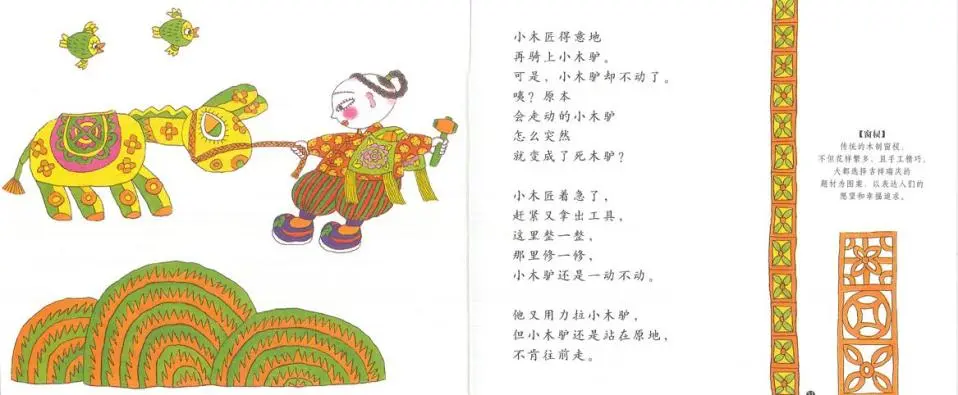 小木匠得意地
再骑上小木驴。
可是，小木驴却不动了。
咦？原本
会走动的小木驴
怎么突然
就变成了死木驴？
小木匠着急了，
赶紧又拿出工具，
这里整一整，
那里修一修，
小木驴还是一动不动。
他又用力拉小木驴，
但小木驴还是站在原地，
不肯往前走。
【窗棂】
传统的木制窗棂，
不但花样繁多，且手工精巧，
大都选择吉祥瑞庆的
题材为图案，以表达人们的
愿望和幸福追求。